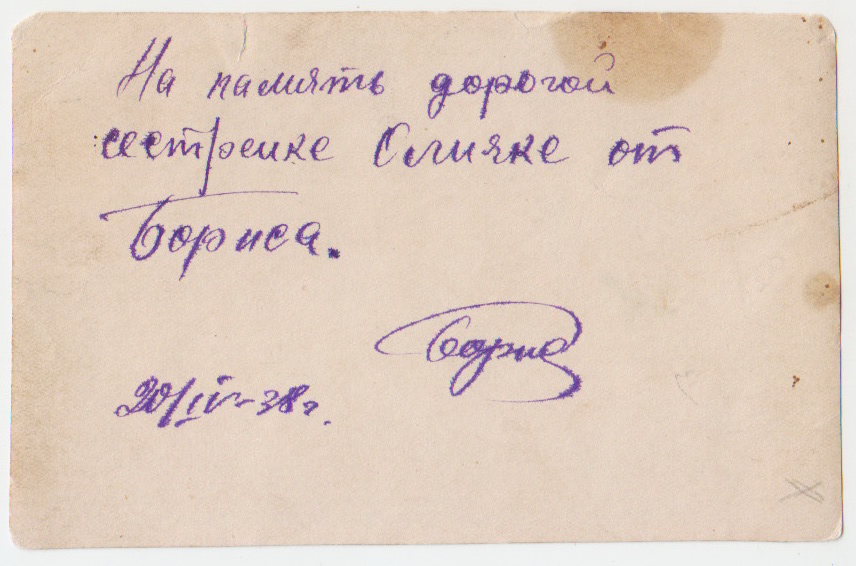 На память дорогой
сестренке от
Бориса.
Борис
20/IV-38 г.